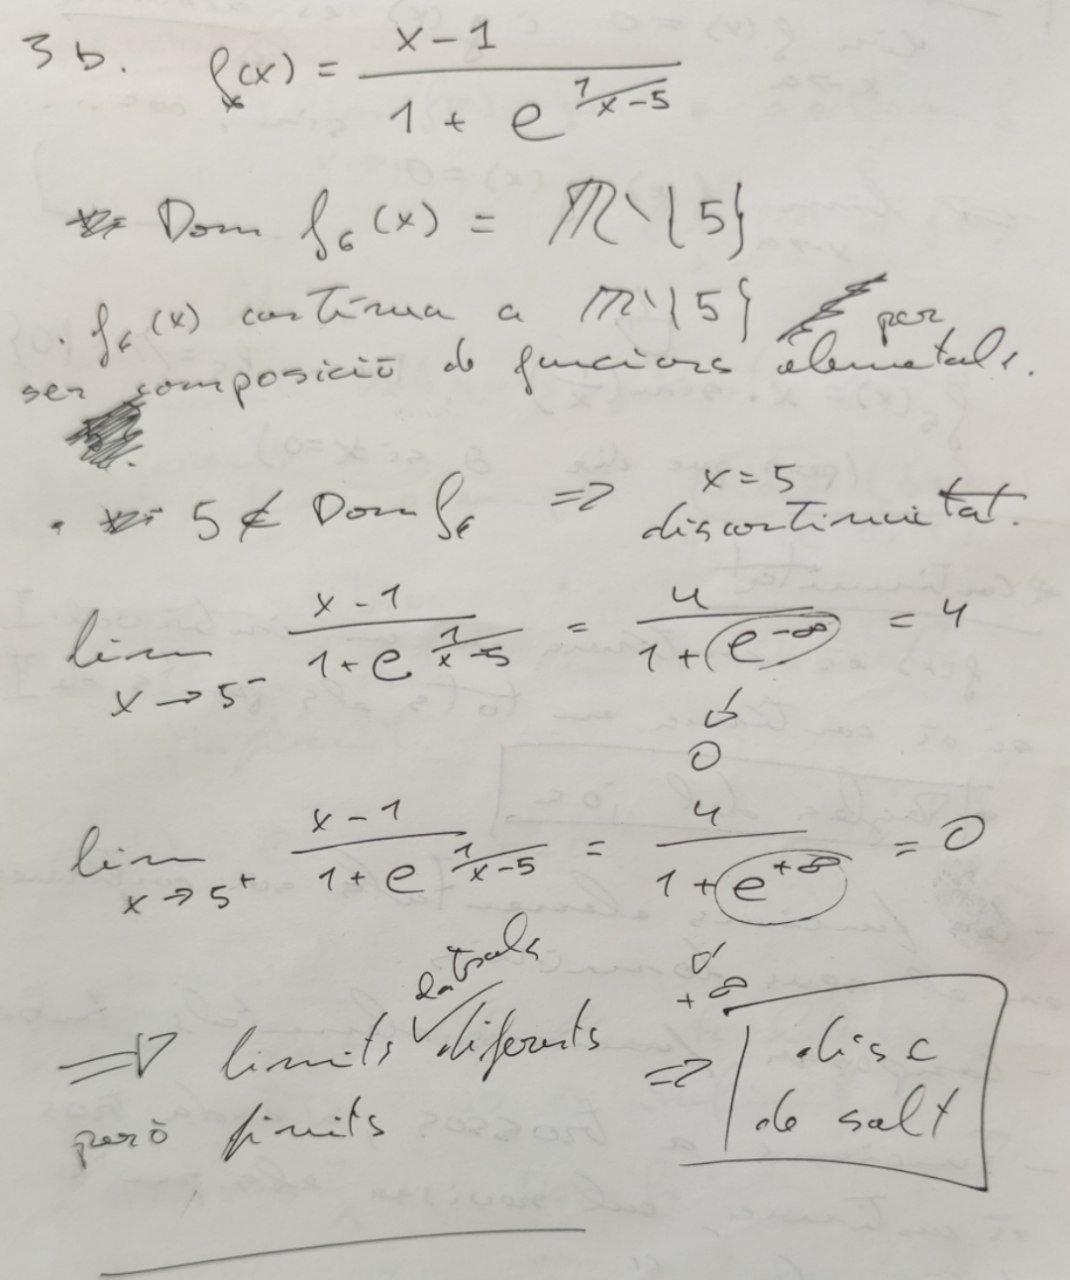 3 b. f(x) = x-1 / 1 + e^(1/x-5)
Dom f₆(x) = ℝ\{5}
· f₆(x) contínua a ℝ\{5} per
ser composició de funcions elementals.
· 5 ∉ Dom f₆ ⇒ x=5
discontinuitat.
lim x→5⁻ x-1 / 1+e^(1/x-5) = 4 / 1+e^(-∞) = 4
↓
0
lim x→5⁺ x-1 / 1+e^(1/x-5) = 4 / 1+e^(+∞) = 0
↓
+∞
laterals
⇒ limits diferents
però finits ⇒ disc
de salt